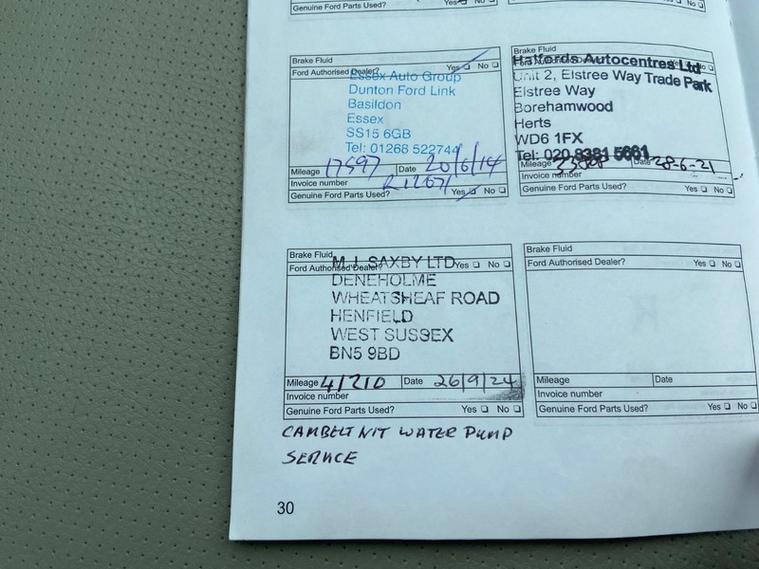 Genuine Ford Parts Used? Yes No
No
Brake Fluid
Ford Authorised Dealer? Yes No
Essex Auto Group
Dunton Ford Link
Basildon
Essex
SS15 6GB
Tel: 01268 522744
Mileage 17597 Date 20/6/14
Invoice number
Genuine Ford Parts Used? Yes No
Brake Fluid
Halfords Autocentres Ltd
No
Unit 2, Elstree Way Trade Park
Elstree Way
Borehamwood
Herts
WD6 1FX
Tel: 020 8381 5661
Mileage Date 28-6-21
Invoice number
Genuine Ford Parts Used? Yes No
Brake Fluid
M.J. SAXBY LTD
Ford Authorised Dealer? Yes No
DENEHOLME
WHEATSHEAF ROAD
HENFIELD
WEST SUSSEX
BN5 9BD
Mileage 41210 Date 26/9/24
Invoice number
Genuine Ford Parts Used? Yes No
Brake Fluid
Ford Authorised Dealer? Yes No
Mileage Date
Invoice number
Genuine Ford Parts Used? Yes No
CAMBELT KIT WATER PUMP
SERVICE
30